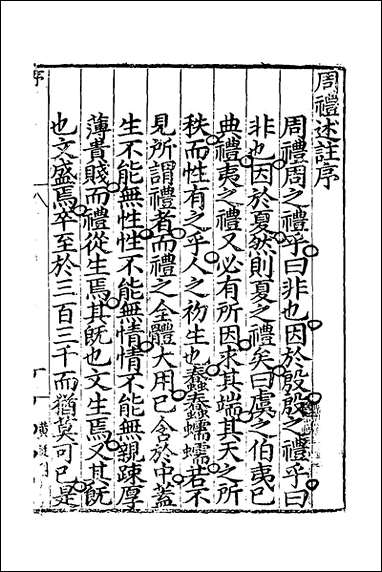 周禮述註序
周禮周之禮乎曰非也因於殷殷之禮乎曰
非也因於夏然則夏之禮矣曰虞之伯夷已
典禮夷之禮又必有所因求其端其天之所
秩而性有之乎人之礽生也蠢蠢蠕蠕若不
見所謂禮者而禮之全體大用已含於中蓋
生不能無性性不能無情情不能無親疎厚
薄貴賤而禮從生焉其旣也文生焉又其旣
也文盛焉卒至於三百三千而猶莫可已是
序